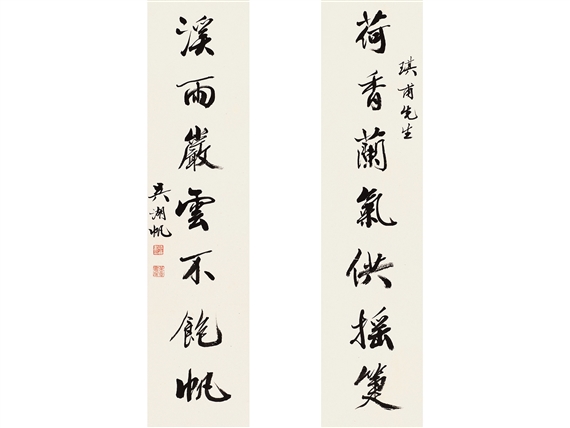 荷香蘭氣供搖箑
琪甫先生
溪雨巖雲不飽帆
吳湖帆